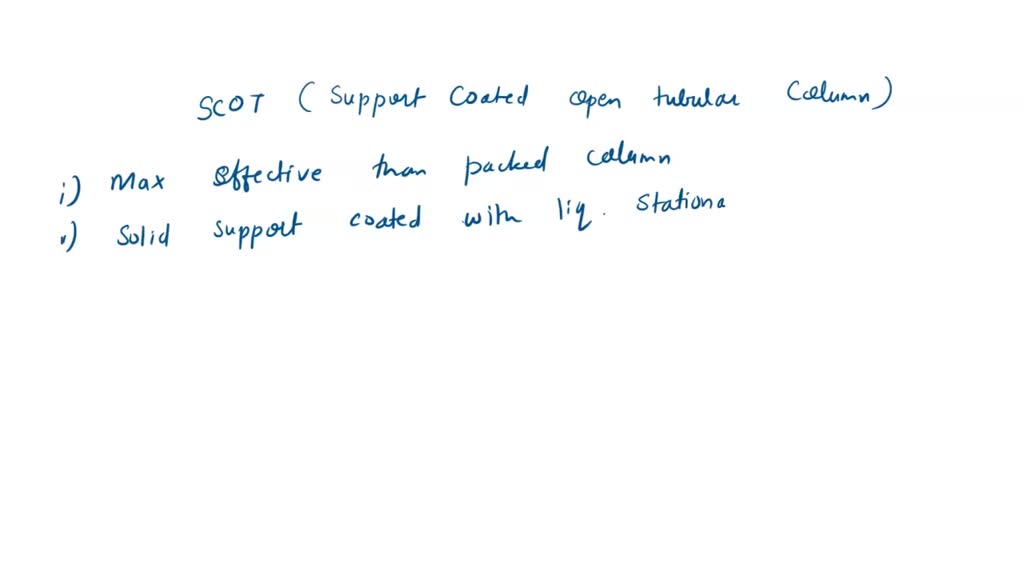 SCOT (Support Coated open tubular Column)
i) Max effective than packed column
ii) Solid support coated with liq. Stationa